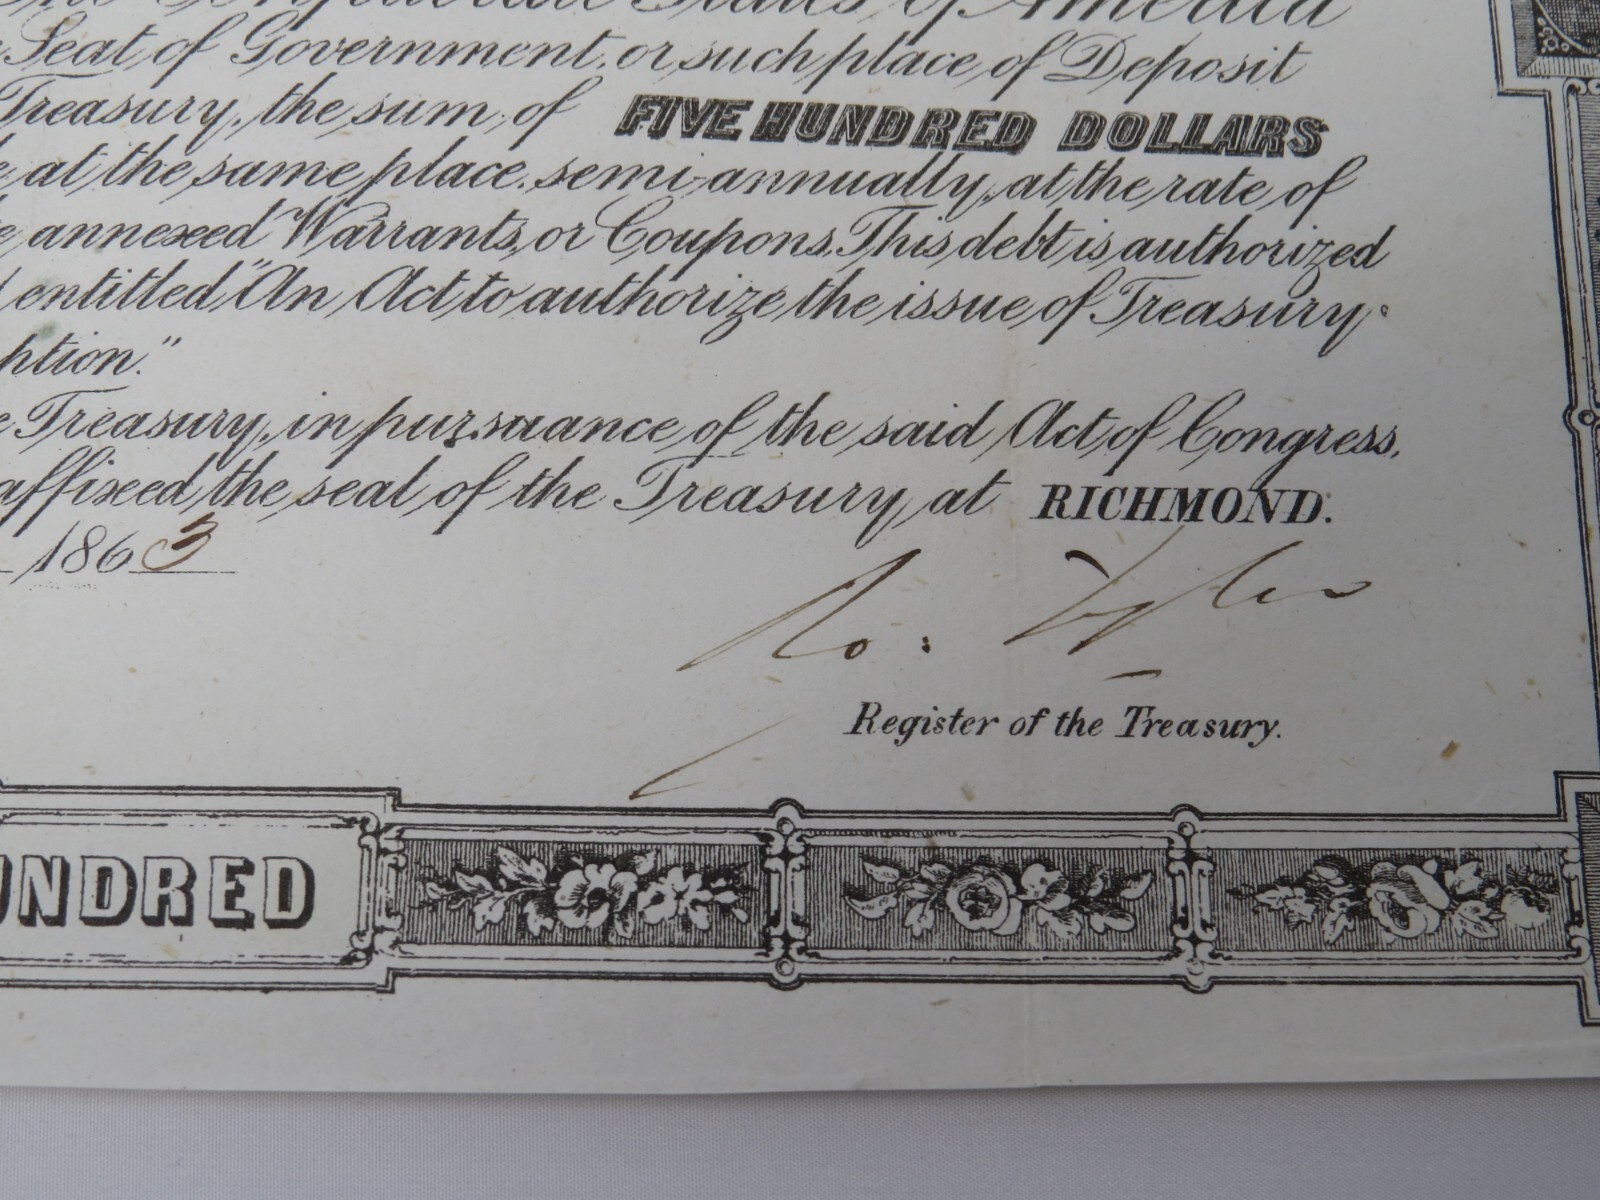 The Confederate States of America
Seat of Government, or such place of Deposit
Treasury, the sum of FIVE HUNDRED DOLLARS
at the same place, semi-annually, at the rate of
annexed Warrants, or Coupons. This debt is authorized
entitled "An Act to authorize the issue of Treasury
htion."
Treasury, in pursuance of the said Act of Congress,
affixed the seal of the Treasury, at RICHMOND.
1863
Ro: Tyler
Register of the Treasury.
UNDRED